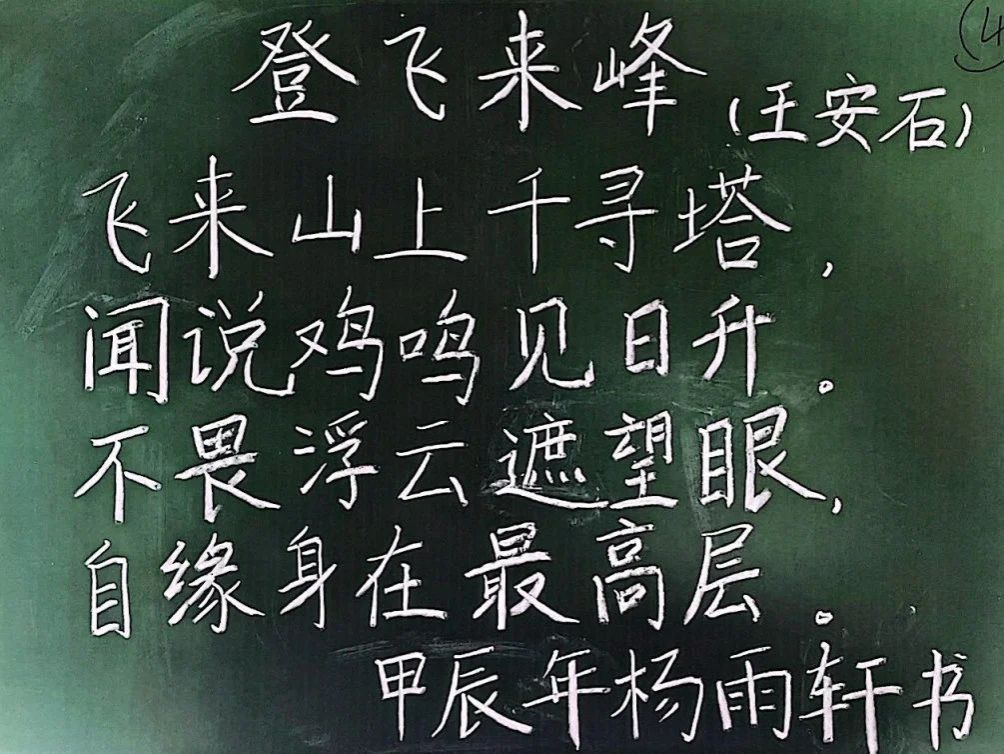 ④
登飞来峰
(王安石)
飞来山上千寻塔,
闻说鸡鸣见日升。
不畏浮云遮望眼,
自缘身在最高层。
甲辰年杨雨轩书